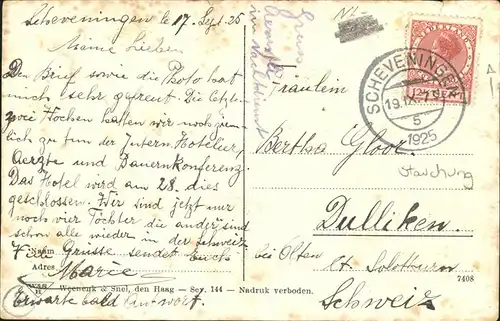 Scheveningen 17 Sept. 25
Meine Lieben
Der Brief sowie die Photo hat
mich sehr gefreut. Die letzten
zwei Wochen hatten wir noch ziem-
lich zu tun der Intern. Hotelier,
Aerzte und Bauernkonferenz.
Das Hotel wird am 28. dies
geschlossen. Wir sind jetzt nur
noch vier Töchter die andern sind
schon alle wieder in der Schweiz
Grüsse sendet Euch
Naam
Adres
Marie
Erwarte bald Antwort.
Weenenk & Snel, den Haag — Sev. 144 — Nadruk verboden.
7408
NEDERLAND
SCHEVENINGEN
19.IX
5
1925
Fräulein
Bertha Gloor
Dulliken
bei Olten
Kt. Solothurn
Schweiz